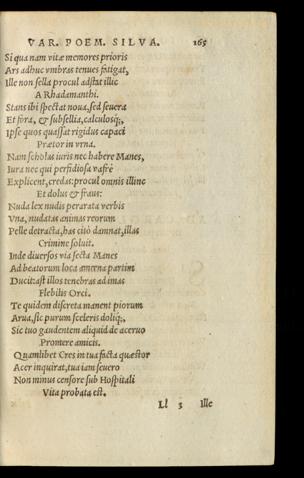 VAR. POEM. SILVA. 165
Si qua nam vitæ memores prioris
Ars adhuc vmbras tenues fatigat,
Ille non sella procul adstat illic
A Rhadamanthi.
Stans ibi spectat noua, sed seuera
Et fora, & subsellia, calculosq;,
Ipse quos quassat rigidus capaci
Prætor in vrna.
Nam scholas iuris nec habere Manes,
Iura nec qui perfidiosa vafrè
Explicent, credas: procul omnis illinc
Et dolus & fraus:
Nuda lex nudis perarata verbis
Vna, nudatas animas reorum
Pelle detracta, has citò damnat, illas
Crimine soluit.
Inde diuersos via secta Manes
Ad beatorum loca amœna partim
Ducit: ast illos tenebras ad imas
Flebilis Orci.
Te quidem discreta manent piorum
Arua, sic purum sceleris doliq;,
Sic tuo gaudentem aliquid de aceruo
Promere amicis.
Quamlibet Cres in tua facta quæstor
Acer inquirat, tua iam seuero
Non minus censore sub Hospitali
Vita probata est.
Ll 3 Ille